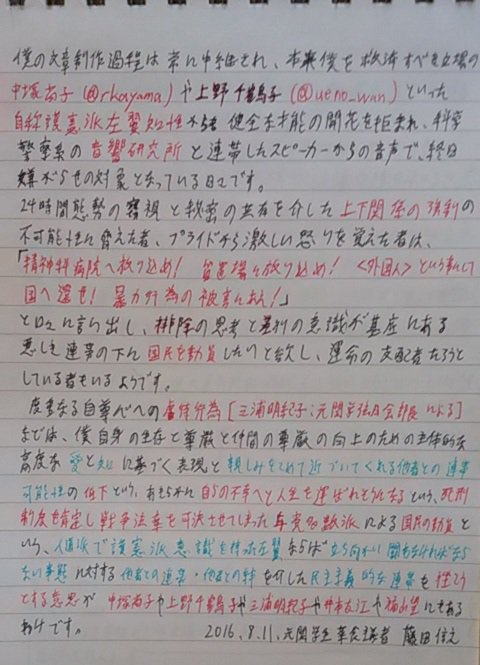 僕の文章制作過程は常に中継され、本来僕を救済すべき立場の
中塚尚子(@rkayama)や上野千鶴子(@ueno_wan)といった
自称護憲派左翼知性から健全な才能の開花を拒まれ、科学
警察系の音響研究所と連帯したスピーカーからの音声で、終日
嫌がらせの対象となっている日々です。
24時間態勢の審視と秘密の共有を介した上下関係の強制の
不可能性に脅えた者、プライドから激しい怒りを覚えた者は、
「精神科病院へ放り込め! 留置場に放り込め! <外国人>という事にして
国へ還せ! 暴力行為の被害にあえ!」
と口々に言い出し、排除の思考と差別の意識が基底にある
悪しき連帯の下に国民を動員したいと欲し、運命の支配者たろうと
している者もいるようです。
度重なる自尊心への虐待行為[三浦明紀子:元関学弦A会部長による]
などは、僕自身の生存と尊厳と仲間の尊厳の向上のための主体的な
高度な愛と知に基づく表現と親しみをこめて近づいてくれる他者との連帯
可能性の低下という、あきらかに自らの不幸へと人生を運ばれそうになるという、死刑
制度を肯定し戦争法案を可決させてしまった与党多数派による国民の動員と
いう、人権派で護憲派意識を持った左翼ならば立ち向かい闘わなければなら
ない事態に対する他者との連帯・他者との絆を介した民主主義的な連帯を拒もう
とする意思が中塚尚子や上野千鶴子や三浦明紀子や
わけです。 2016.8.11.元関学生 藤田